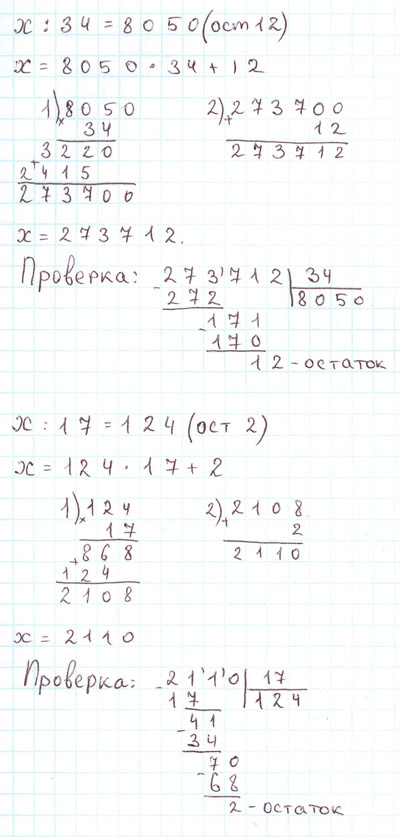 x : 34 = 8050 (ост 12)
x = 8050 · 34 + 12
1) 8050 2) 273700
× 34 + 12
3220 273712
+
2415
273700
x = 273712.
Проверка: 273'712 | 34
- 272 8050
171
- 170
12 - остаток
x : 17 = 124 (ост 2)
x = 124 · 17 + 2
1) 124 2) 2108
× 17 + 2
+ 868 2110
124
2108
x = 2110
Проверка: - 21'1'0 | 17
17 124
41
- 34
70
- 68
2 - остаток